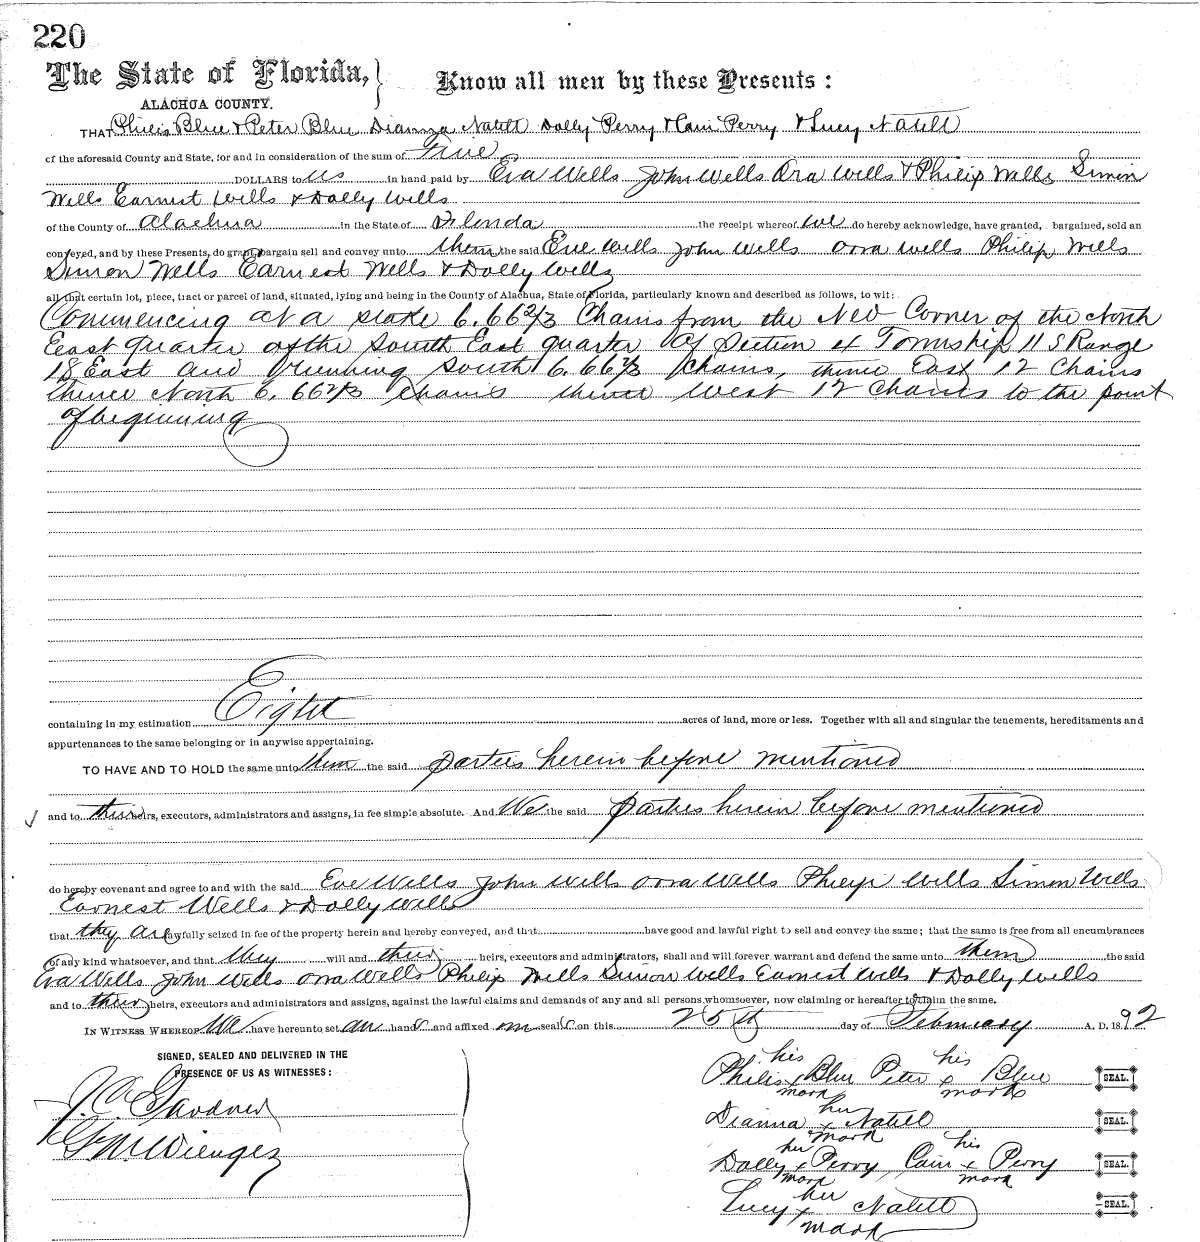 220
The State of Florida, Know all men by these Presents:
ALACHUA COUNTY.
THAT Philis Blue & Peter Blue Dianna Natell Dolly Perry & Cain Perry & Lucy Natell
of the aforesaid County and State, for and in consideration of the sum of Five
DOLLARS to us in hand paid by Eva Wells John Wells Ora Wells & Philip Wells Simon
Wells Earnest Wells & Dolly Wells
of the County of Alachua in the State of Florida the receipt whereof we do hereby acknowledge, have granted, bargained, sold an
conveyed, and by these Presents, do grant, bargain sell and convey unto them the said Eve Wells John Wells Orra Wells Philip Wells
Simon Wells Earnest Wells & Dolly Wells
all that certain lot, piece, tract or parcel of land, situated, lying and being in the County of Alachua, State of Florida, particularly known and described as follows, to wit:
Commencing at a stake 6.66 2/3 Chains from the Corner of the North
East quarter of the South East quarter of Section 4 Township 11 S Range
18 East and running south 6.66 2/3 Chains, thence East 12 Chains
thence North 6.66 2/3 Chains thence West 12 Chains to the point
of beginning
containing in my estimation Eight acres of land, more or less. Together with all and singular the tenements, hereditaments and
appurtenances to the same belonging or in anywise appertaining.
TO HAVE AND TO HOLD the same unto them the said parties herein before mentioned
and to their heirs, executors, administrators and assigns, in fee simple absolute. And We the said parties herein before mentioned
do hereby covenant and agree to and with the said Eve Wells John Wells Orra Wells Philip Wells Simon Wells
Earnest Wells & Dolly Wells
that they are lawfully seized in fee of the property herein and hereby conveyed, and that have good and lawful right to sell and convey the same; that the same is free from all encumbrances
of any kind whatsoever, and that they will and their heirs, executors and administrators, shall and will forever warrant and defend the same unto them the said
Eva Wells John Wells Orra Wells Philip Wells Simon Wells Earnest Wells & Dolly Wells
and to their heirs, executors and administrators and assigns, against the lawful claims and demands of any and all persons whomsoever, now claiming or hereafter to claim the same.
IN WITNESS WHEREOF We have hereunto set our hands and affixed our seals on this 25th day of February A. D. 1892
SIGNED, SEALED AND DELIVERED IN THE
PRESENCE OF US AS WITNESSES:
his his
Philis x Blue Peter x Blue SEAL.
mark mark
J. A. Gardner
her
Dianna x Natell SEAL.
mark
her his
Dolly x Perry Cain x Perry SEAL.
mark mark
her
Lucy x Natell SEAL.
mark